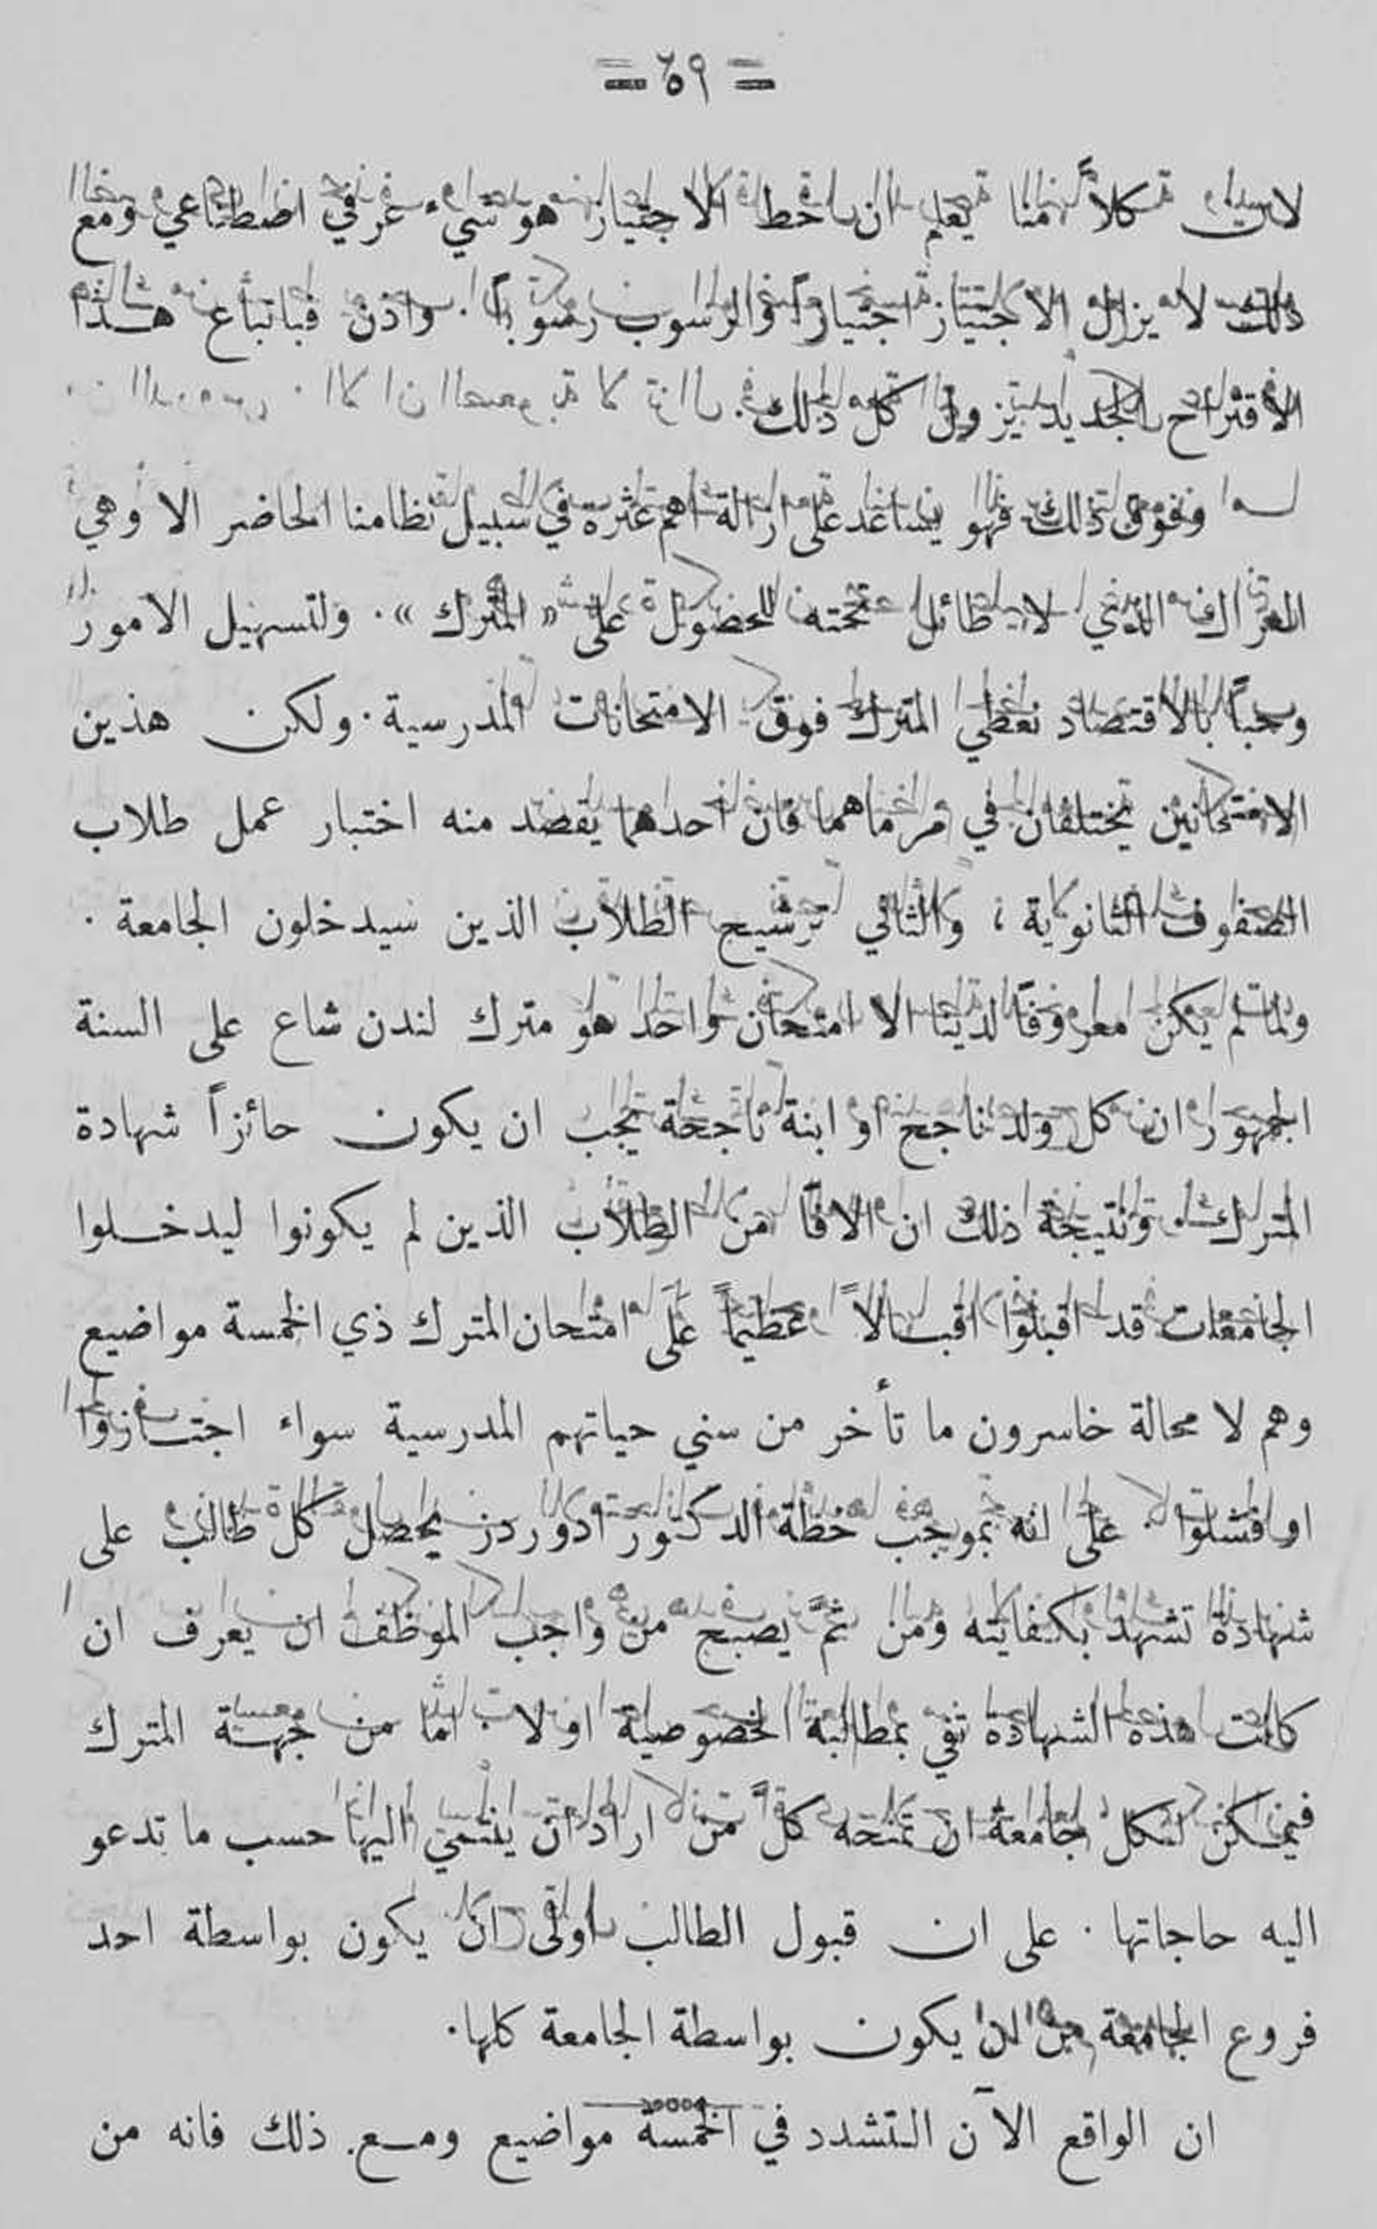 = ٥٩ =
لان كلاً منا يعلم ان خط الاجتياز هو شيء عرفي اصطناعي ومع
ذلك لا يزال الاجتياز اجتيازاً والرسوب رسوباً. واذن فباتباع هذا
الاقتراح الجديد يزول كل ذلك.
وفوق ذلك فهو يساعد على ازالة اهم عثرة في سبيل نظامنا الحاضر الا وهي
العراك الذي لا طائل تحته للحصول على «المترك». ولتسهيل الامور
وحباً بالاقتصاد نعطي المترك فوق الامتحانات المدرسية. ولكن هذين
الامتحانين يختلفان في مرماهما فان احدهما يقصد منه اختبار عمل طلاب
الصفوف الثانوية، والثاني ترشيح الطلاب الذين سيدخلون الجامعة.
ولما لم يكن معروفاً لدينا الا امتحان واحد هو مترك لندن شاع على السنة
الجمهور ان كل ولد ناجح او ابنة ناجحة يجب ان يكون حائزاً شهادة
المترك. ونتيجة ذلك ان الافاً من الطلاب الذين لم يكونوا ليدخلوا
الجامعات قد اقبلوا اقبالاً عظيماً على امتحان المترك ذي الخمسة مواضيع
وهم لا محالة خاسرون ما تأخر من سني حياتهم المدرسية سواء اجتازوا
او فشلوا. على انه بموجب خطة الدكتور ادوردز يحصل كل طالب على
شهادة تشهد بكفايته ومن ثمَّ يصبح من واجب الموظف ان يعرف ان
كانت هذه الشهادة تفي بمطالبة الخصوصية او لا. اما من جهة المترك
فيمكن لكل جامعة ان تمنحه كلَّ من اراد ان ينتمي اليها حسب ما تدعو
اليه حاجاتها. على ان قبول الطالب اولى ان يكون بواسطة احد
فروع الجامعة من ان يكون بواسطة الجامعة كلها.
ان الواقع الآن التشدد في الخمسة مواضيع ومع ذلك فانه من